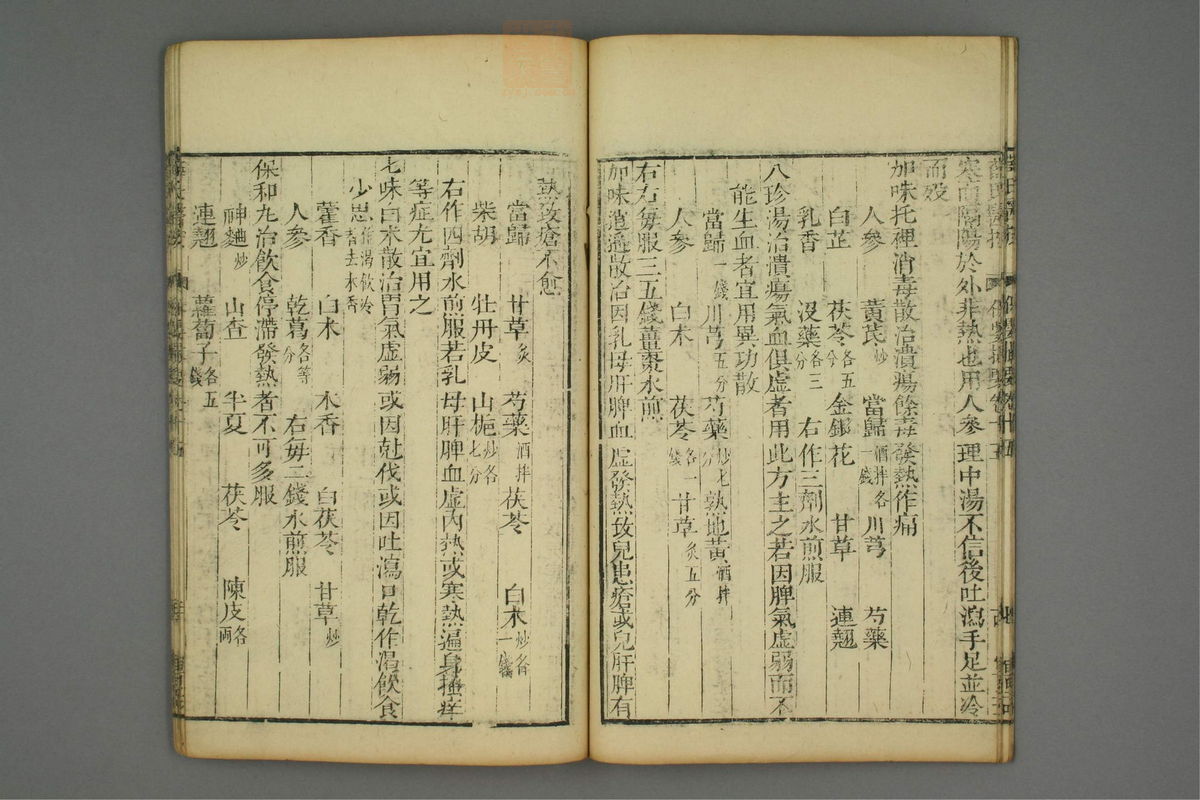 寒而隔陽於外非熱也用人參理中湯不信後吐瀉手足並冷
而殁
加味托裡消毒散治潰瘍餘毒發熱作痛
人參 黃芪炒 當歸酒拌各一錢 川芎 芍藥
白芷 茯苓各五分 金銀花 甘草 連翹
乳香 沒藥各三分 右作三劑水煎服
八珍湯治潰瘍氣血俱虛者用此方主之若因脾氣虛弱而不
能生血者宜用異功散
當歸一錢 川芎五分 芍藥炒七分 熟地黃酒拌
人參 白朮 茯苓各一錢 甘草炙五分
右每服三五錢薑棗水煎
加味逍遙散治因乳母肝脾血虛發熱致兒患瘡或兒肝脾有
熱致瘡不愈
當歸 甘草炙 芍藥酒拌 茯苓 白朮炒各一錢
柴胡 牡丹皮 山梔炒各七分
右作四劑水煎服若乳母肝脾血虛內熱或寒熱遍身搔痒
等症尤宜用之
七味白朮散治胃氣虛弱或因尅伐或因吐瀉口乾作渴飲食
少思作渴飲冷者去木香
藿香 白朮 木香 白茯苓 甘草炒
人參 乾葛各等分 右每二錢水煎服
保和丸治飲食停滯發熱者不可多服
神麯炒 山查 半夏 茯苓 陳皮各一兩
連翹 蘿蔔子各五錢